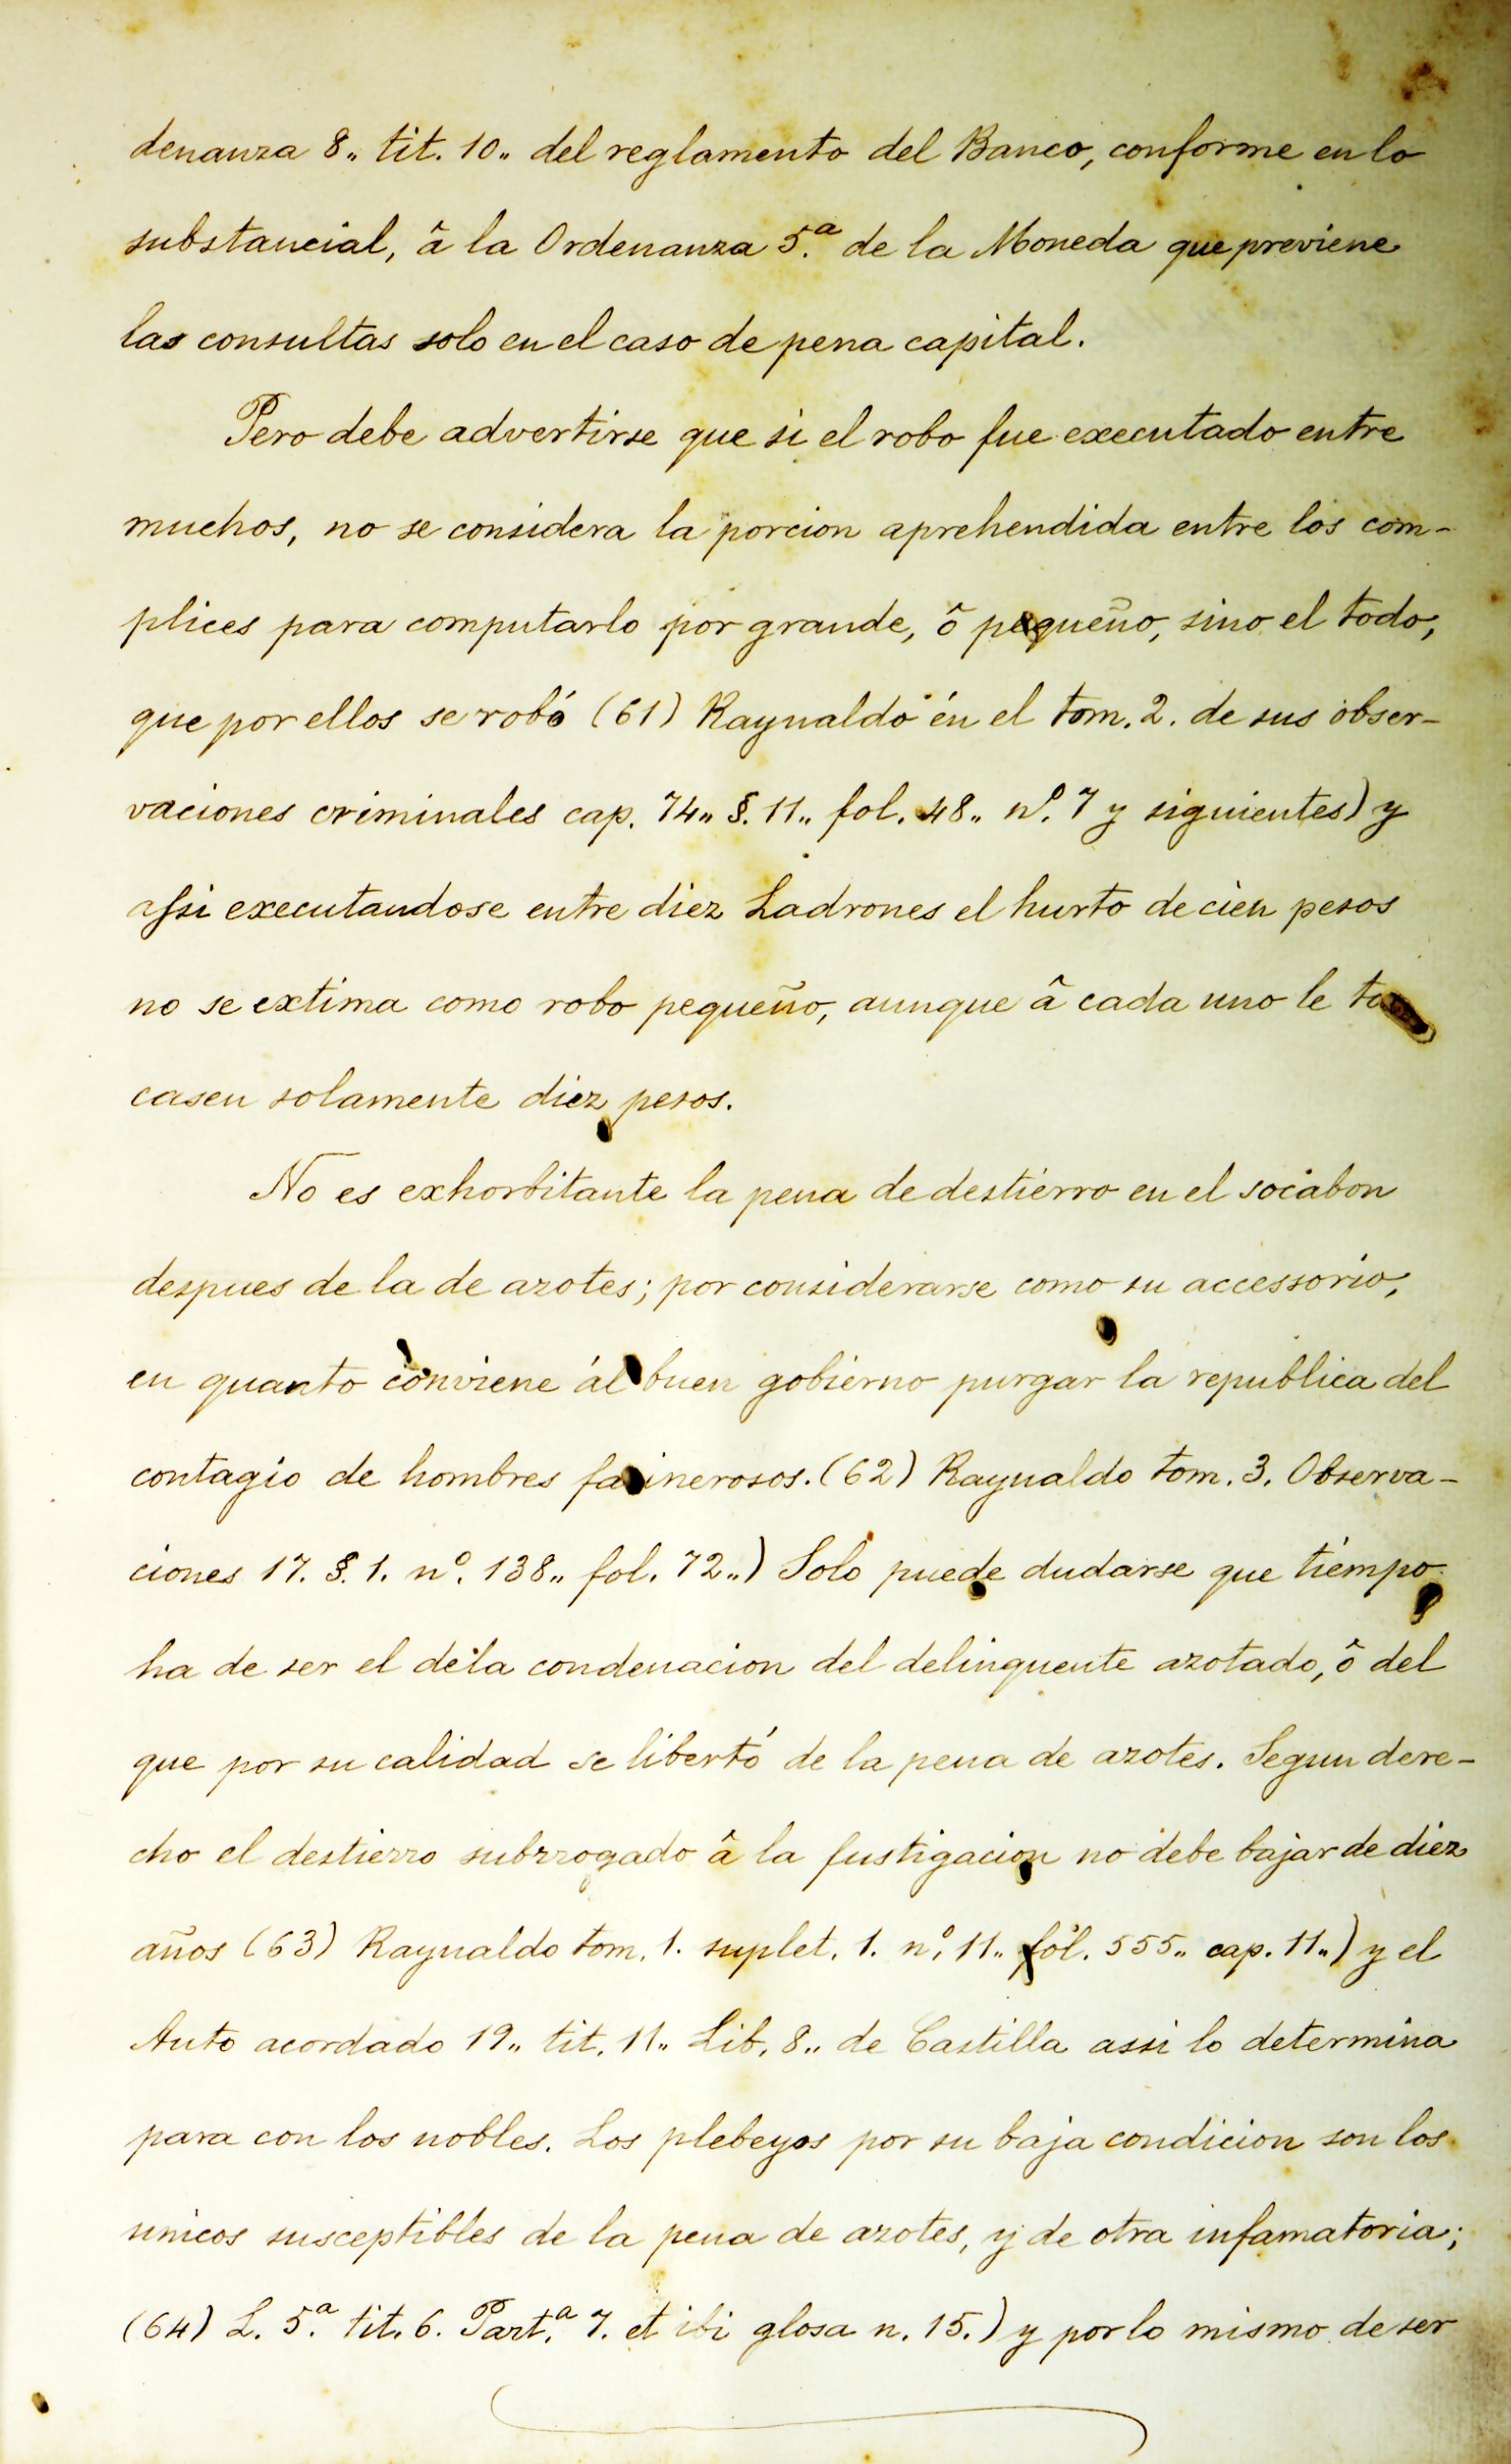 denanza 8,, tit. 10,, del reglamento del Banco, conforme en lo
substancial, â la Ordenanza 5.ª de la Moneda que previene
las consultas solo en el caso de pena capital.
Pero debe advertirse que si el robo fue executado entre
muchos, no se considera la porcion aprehendida entre los com-
plices para computarlo por grande, ô pequeño, sino el todo,
que por ellos se robó (61) Raynaldo en el tom. 2. de sus obser-
vaciones criminales cap. 74,, §. 11,, fol. 48,, nº. 7 y siguientes) y
assi executandose entre diez Ladrones el hurto de cien pesos
no se extima como robo pequeño, aunque â cada uno le to
casen solamente diez pesos.
No es exhorbitante la pena de destierro en el socabon
despues de la de azotes; por considerarse como su accessorio,
en quanto conviene ál buen gobierno purgar la republica del
contagio de hombres facinerosos. (62) Raynaldo tom. 3. Observa-
ciones 17. §. 1. nº. 138,, fol. 72,,) Solo puede dudarse que tiempo
ha de ser el dela condenacion del delinquente azotado, ô del
que por su calidad se libertó de la pena de azotes. Segun dere-
cho el destierro subrrogado â la fustigacion no debe bajar de diez
años (63) Raynaldo tom. 1. suplet. 1. nº. 11,, fol. 555,, cap. 11,,) y el
Auto acordado 19,, tit. 11,, Lib. 8,, de Castilla assi lo determina
para con los nobles. Los plebeyos por su baja condicion son los
unicos susceptibles de la pena de azotes, y de otra infamatoria;
(64) L. 5.ª tit. 6. Part.ª 7. et ibi glosa n. 15.) y por lo mismo de ser